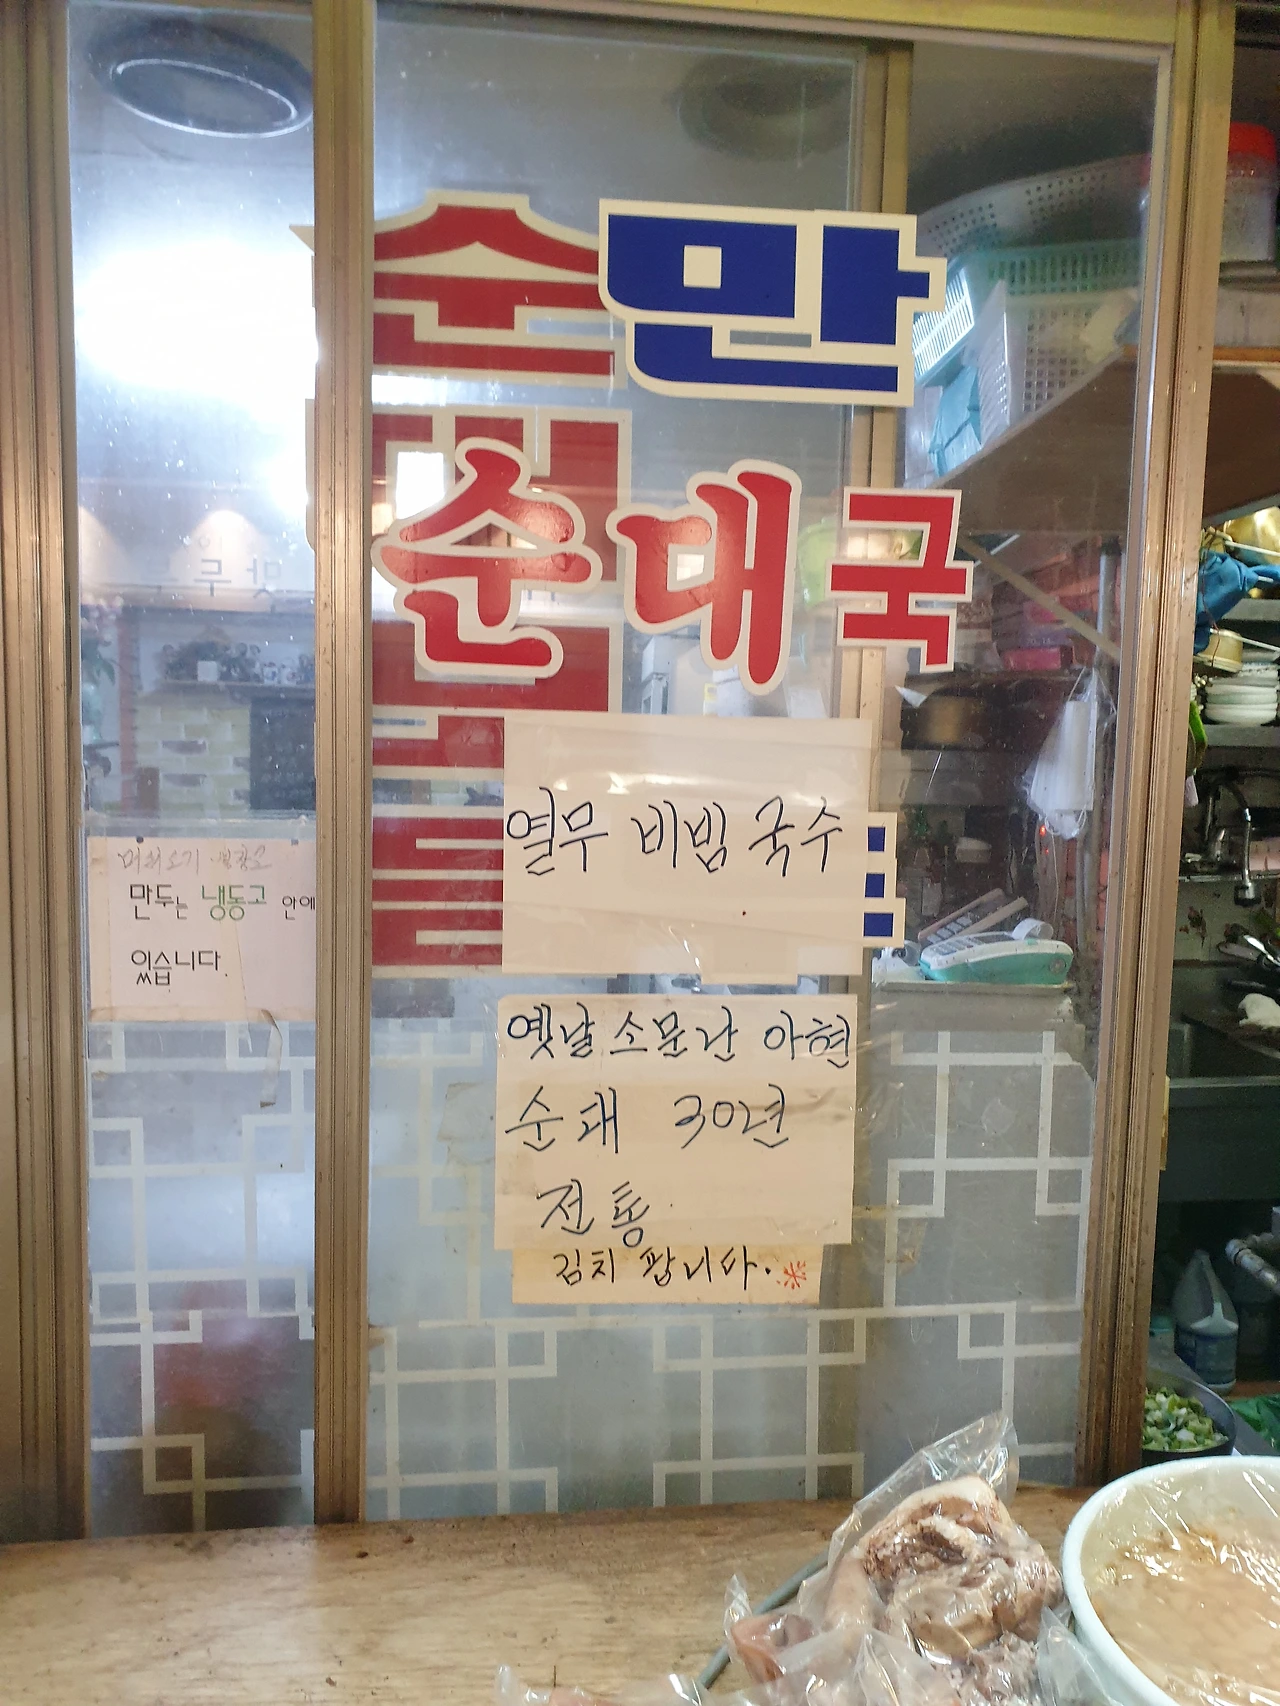 순
만
대
순대국
열무 비빔 국수
만두는 냉동고 안에
있습니다.
옛날 소문난 아현
순대 30년
전통
김치 팝니다.